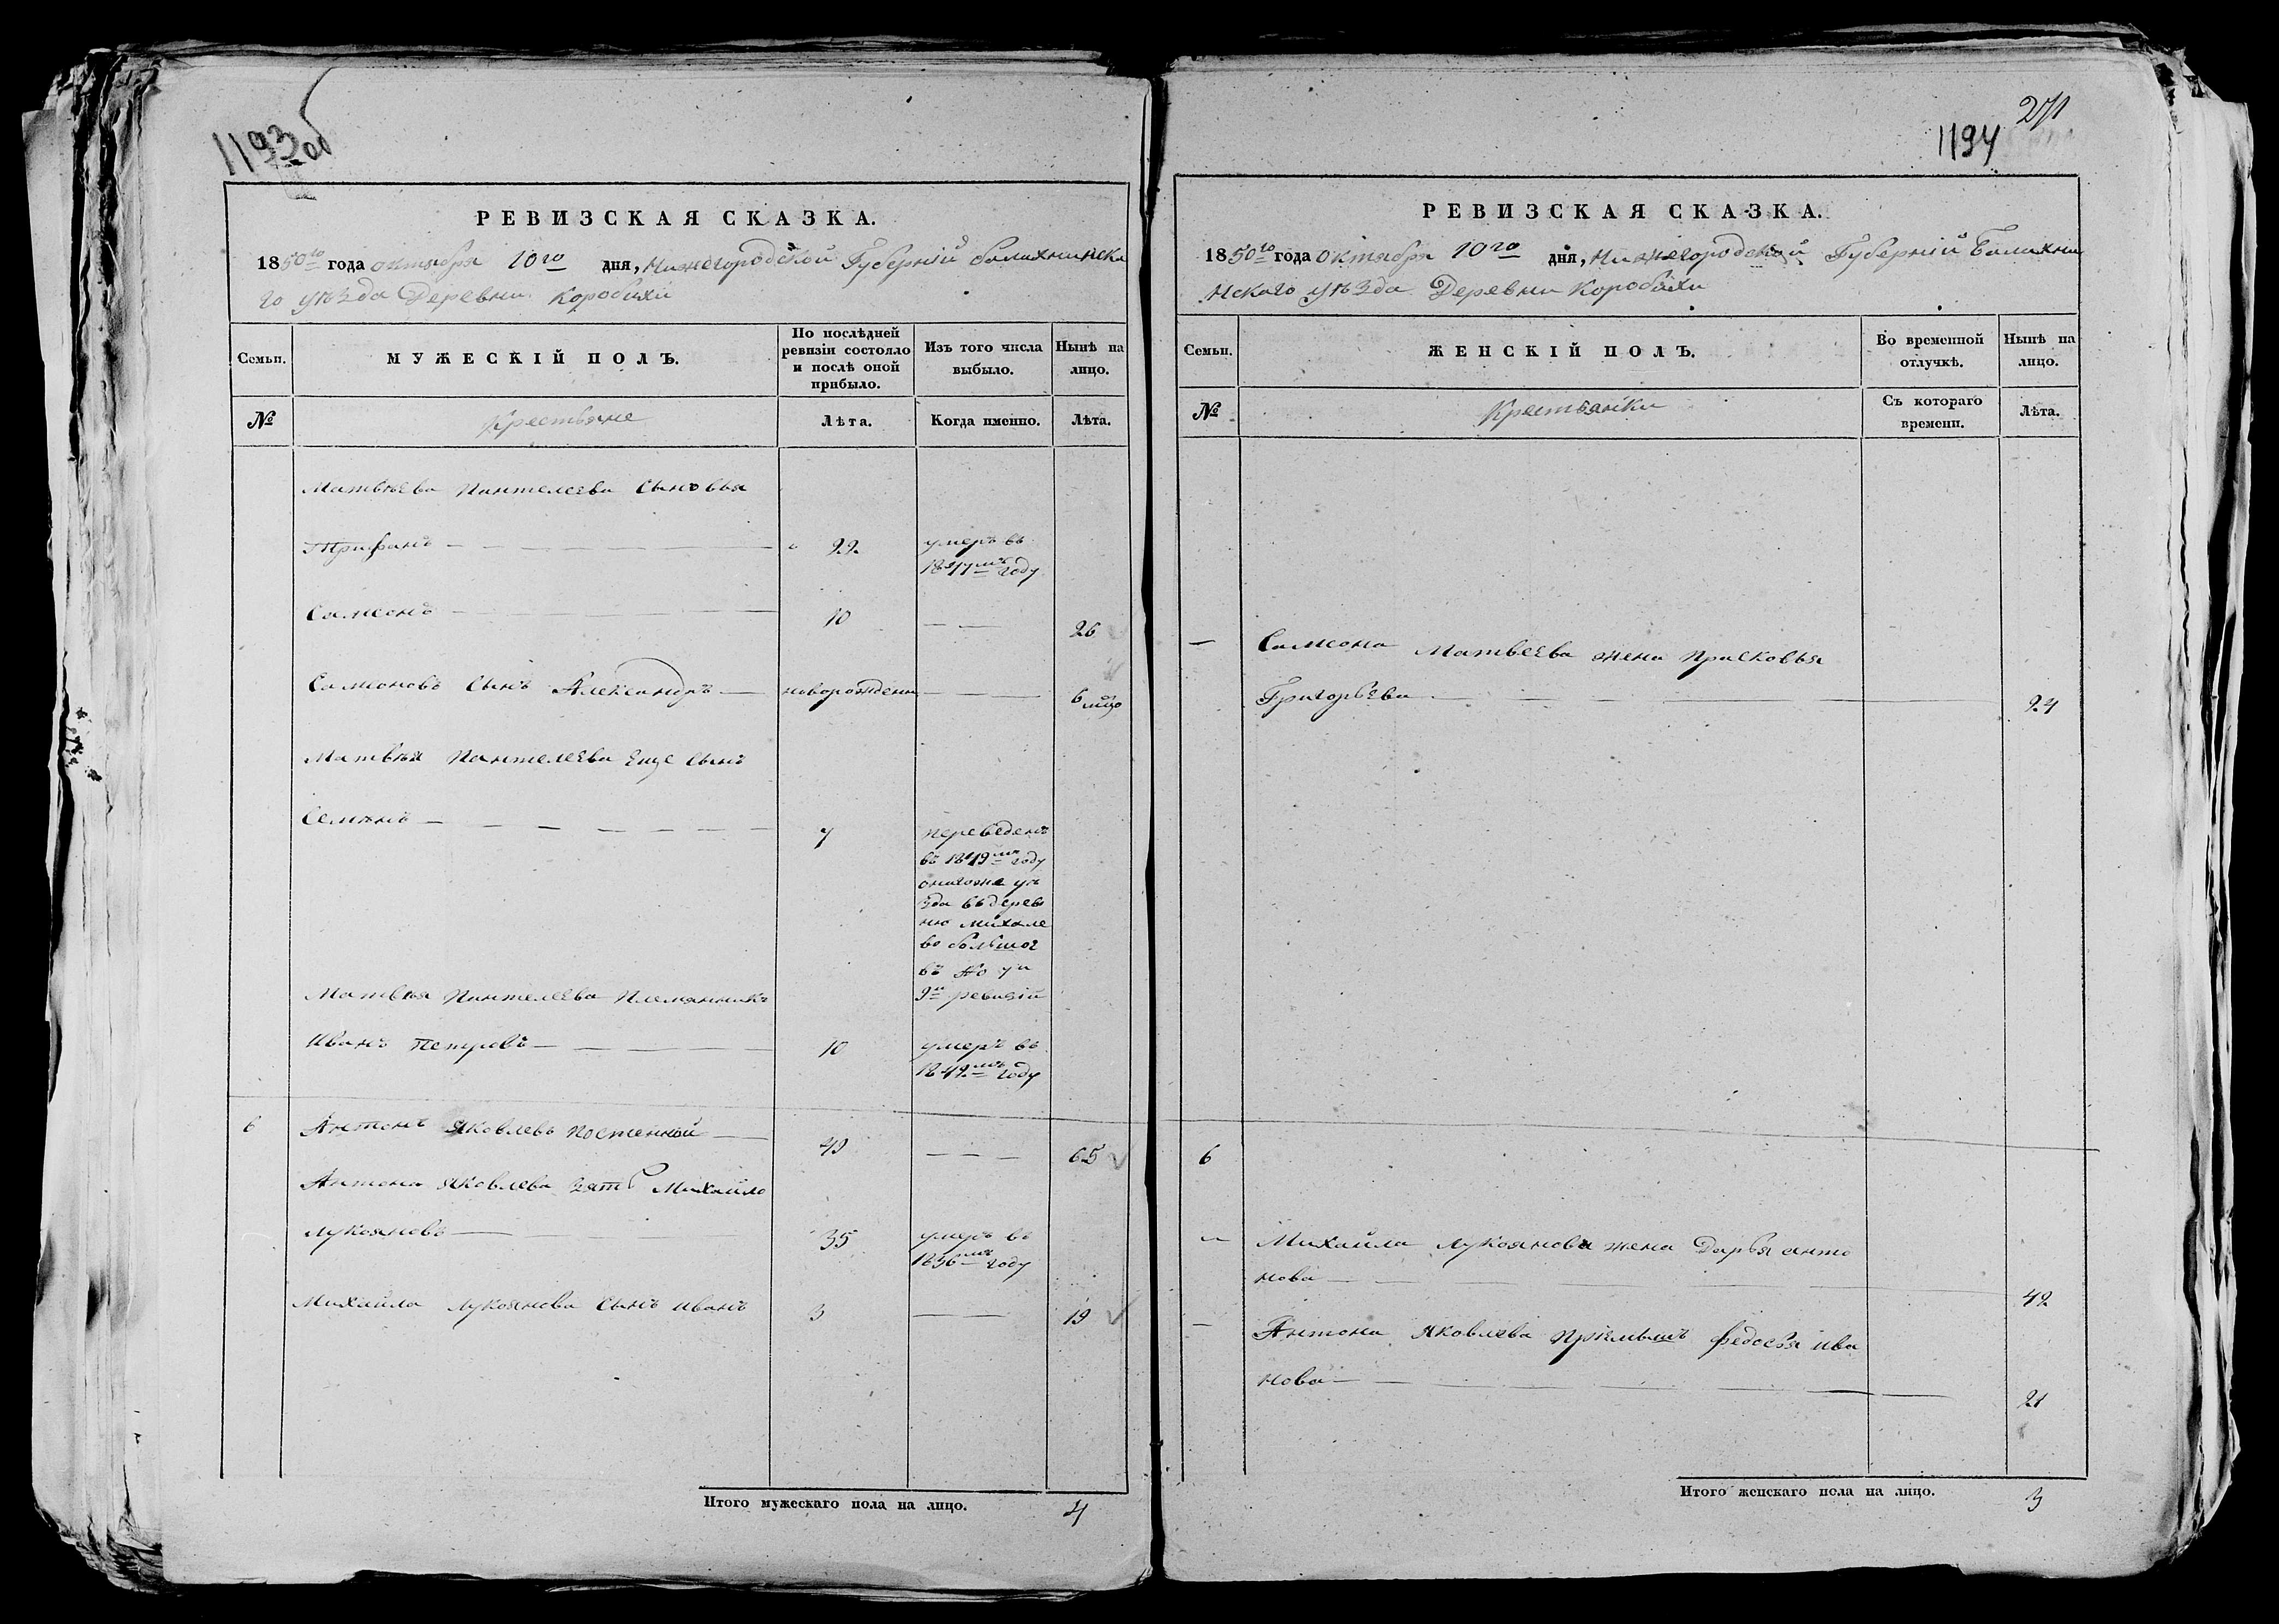 1193об
РЕВИЗСКАЯ СКАЗКА.
1850го года октября 10го дня, Нижегородской Губерний балахнинска
го уѣзда Деревни Коробихи
Семьи.
МУЖЕСКІЙ ПОЛЪ.
По послѣдней
ревизіи состояло
и послѣ оной
прибыло.
Изъ того числа
выбыло.
Нынѣ на
лицо.
№
Крестьяне
Лѣта.
Когда именно.
Лѣта.
Матвѣева Пантелеева Сыновья
Трифанъ 22 умеръ въ
1847мъ году
Самсонъ 10 26
Самсоновъ Сынъ Александръ новорожденн 6 мцо
Матвѣя Пантелеева Еще Сынъ
Семѣнъ 7 переведенъ
въ 1849мъ году
оногоже уѣ
зда въ дерев
ню Михале
во большое
въ № 7й
9й ревизій
Матвѣя Пантелеева Племянникъ
Иванъ Петровъ 10 умеръ въ
1842мъ году
6 Антонъ Яковлевъ Постенной 49 65
Антона Яковлева зять Михайло
Лукояновъ 35 умеръ въ
1836мъ году
Михайла Лукоянова Сынъ Иванъ 3 19
Итого мужескаго пола на лицо. 4
271
1194
РЕВИЗСКАЯ СКАЗКА.
1850го года октября 10го дня, Нижегородской Губерній Балахни
нскаго уѣзда Деревни Коробихи
Семьи.
ЖЕНСКІЙ ПОЛЪ.
Во временной
отлучкѣ.
Нынѣ на
лицо.
№
Крестьянки
Съ котораго
времени.
Лѣта.
Самсона Матвеева жена Прасковья
Григорьева 24
6
Михайла Лукоянова жена Дарья анто
нова 42
Антона Яковлева Пріемышъ федосья ива
нова 21
Итого женскаго пола на лицо. 3